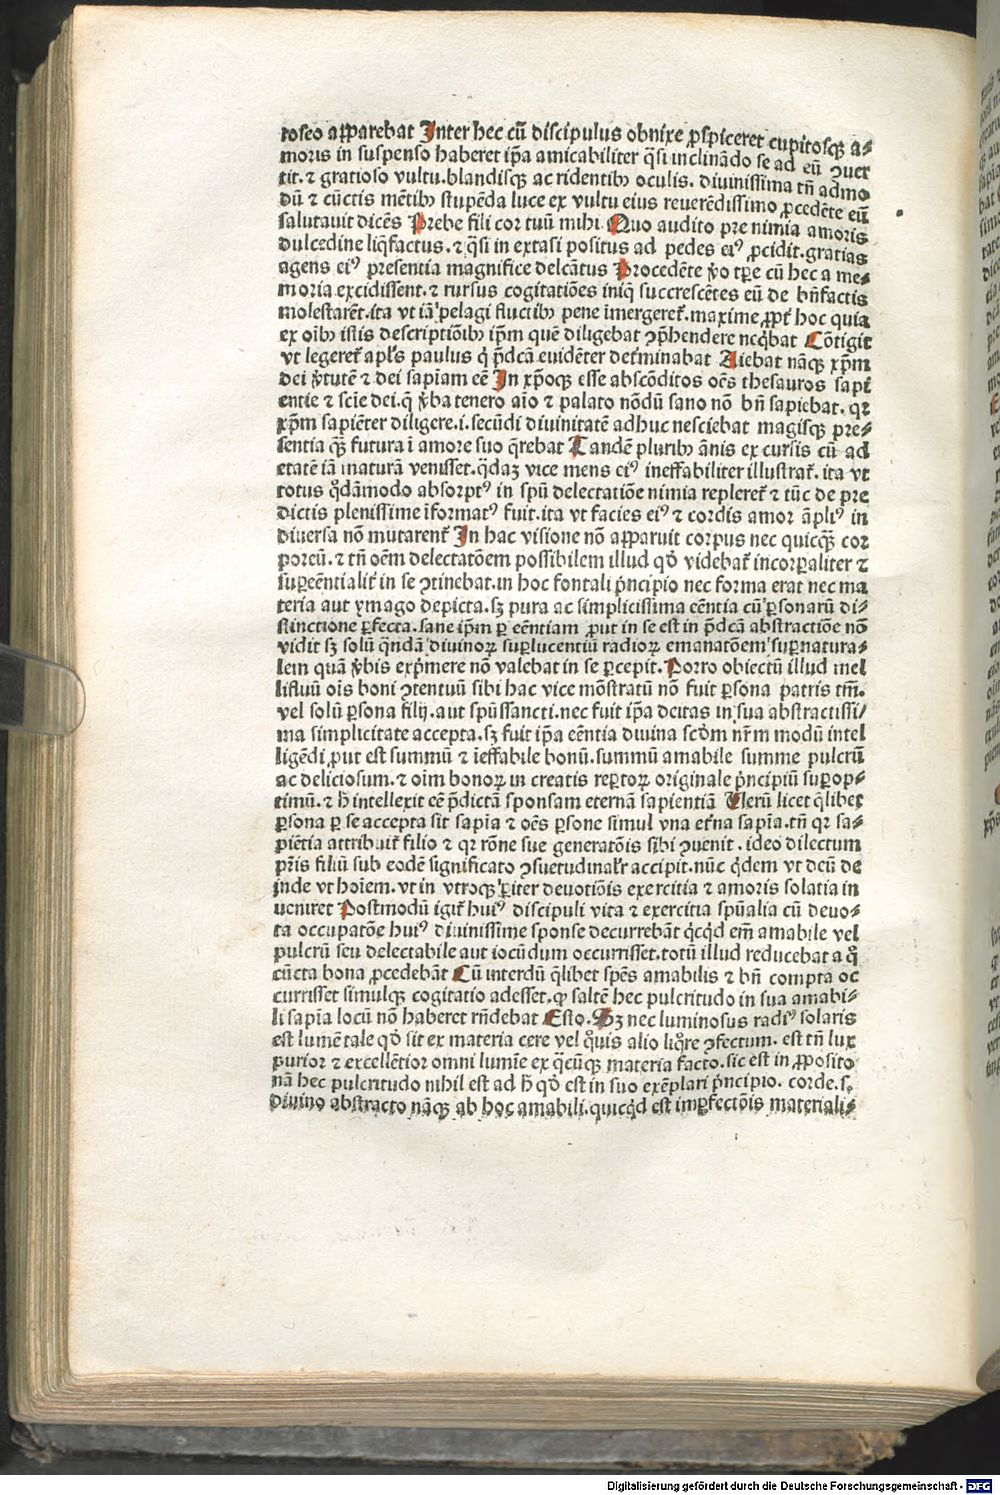 roseo apparebat Inter hec cū discipulus obnixe ꝓspiceret cupitosqꝫ a⸗
moris in suspenso haberet ip̄a amicabiliter q̄si inclinādo se ad eū ꝯuer
tit. ⁊ gratioso vultu. blandisqꝫ ac ridentibꝫ oculis. diuinissima tn̄ admo
dū ⁊ cūctis mētibꝫ stupēda luce ex vultu eius reuerēdissimo ꝓcedēte eū
salutauit dicēs Prebe fili cor tuū mihi Quo audito pre nimia amoris
dulcedine liq̄factus. ⁊ q̄si in extasi positus ad pedes eiꝰ ꝓcidit. gratias
agens eiꝰ presentia magnifice delcātus Procedēte v̾o tꝑe cū hec a me⸗
moria excidissent. ⁊ rursus cogitatiōes iniq̄ succrescētes eū de bn̄factis
molestarēt. ita vt iā pelagi fluctibꝫ pene imergeret̄. maxime ꝓpt̄ hoc quia
ex oībꝫ istis descriptiōibꝫ ip̄m quē diligebat ꝯp̄hendere neq̄bat Cōtigit
vt legeret̄ apl̄s paulus q̇ p̄dcā euidēter det̄minabat Aiebat nāqꝫ xp̄m
dei v̾tutē ⁊ dei sapiam eē In xp̄oqꝫ esse abscōditos oēs thesauros sapi
entie ⁊ scie dei. q̄ v̾ba tenero aīo ⁊ palato nōdū sano nō bn̄ sapiebat. qꝛ
xp̄m sapiēter diligere .i. secūdi diuinitatē adhuc nesciebat magisqꝫ pre⸗
sentia qꝫ̄ futura ī amore suo q̄rebat Tandē pluribꝫ ānis excursis cū ad
etatē iā maturā venisset. q̄daꝫ vice mens eiꝰ ineffabiliter illustrat̄. ita vt
totus qͦdāmodo absorptꝰ in spū delectatiōe nimia repleret̄ ⁊ tūc de pre
dictis plenissime īformatꝰ fuit. ita vt facies eiꝰ ⁊ cordis amor āpliꝰ in
diuersa nō mutarent̄ In hac visione nō apparuit corpus nec quicqꝫ̄ cor
poreū. ⁊ tn̄ oēm delectatōem possibilem illud qd̾ videbat̄ incorꝑaliter ⁊
suꝑeēntialit̄ in se ꝯtinebat. in hoc fontali p̄ncipio nec forma erat nec ma
teria aut ymago depicta. sꝫ pura ac simplicissima eēntia cū ꝑsonarū di⸗
stinctione ꝑfecta. sane ip̄m ꝑ eēntiam ꝓut in se est in p̄dcā abstractiōe nō
vidit sꝫ solū q̄ndā diuinoꝝ suꝑlucentiū radioꝝ emanatōem suꝑnatura⸗
lem quā v̾bis exp̄mere nō valebat in se ꝑcepit. Porro obiectū illud mel
lifluū oīs boni ꝯtentuū sibi hac vice mōstratū nō fuit ꝑsona patris tm̄.
vel solū ꝑsona filij. aut spūssancti. nec fuit ip̄a deitas in sua abstractissi⸗
ma simplicitate accepta. sꝫ fuit ip̄a eēntia diuina scd̾m nr̄m modū intel
ligēdi ꝓut est summū ⁊ īeffabile bonū. summū amabile summe pulcrū
ac deliciosum. ⁊ oīm bonoꝝ in creatis reꝑtoꝝ originale p̄ncipiū suꝑop⸗
timū. ⁊ h̾ intellexit eē p̄dictā sponsam eternā sapientiā Uerū licet q̄libet
ꝑsona ꝑ se accepta sit sapīa ⁊ oēs ꝑsone simul vna et̄na sapīa. tn̄ qꝛ sa⸗
piētia attribuit̄ filio ⁊ qꝛ rōne sue generatōis sibi ꝯuenit. ideo dilectum
pr̄is filiū sub eodē significato ꝯsuetudinalr̄ accipit. nūc q̇dem vt deū de
inde vt hoīem. vt in vtroqꝫ ꝑiter deuotiōis exercitia ⁊ amoris solatia in
ueniret Postmodū igit̄ huiꝰ discipuli vita ⁊ exercitia spūalia cū deuo⸗
ta occupatōe huiꝰ diuinissime sponse decurrebāt q̇cq̇d em̄ amabile vel
pulcrū seu delectabile aut iocūdum occurrisset. totū illud reducebat a qͦ
cūcta bona ꝓcedebāt Cū interdū q̄libet spēs amabilis ⁊ bn̄ compta oc
currisset simulqꝫ cogitatio adesset. ꝙ saltē hec pulcritudo in sua amabi⸗
li sapīa locū nō haberet rn̄debat Esto. Sꝫ nec luminosus radiꝰ solaris
est lumē tale qd̾ sit ex materia cere vel qͦuis alio liq̄re ꝯfectum. est tn̄ lux
purior ⁊ excellētior omni lumīe ex q̄cūqꝫ materia facto. sic est in ꝓposito
nā hec pulcritudo nihil est ad h̾ qd̾ est in suo exēplari p̄ncipio. corde .s.
diuino abstracto nāqꝫ ab hoc amabili. quicq̇d est imꝑfectōis materiali⸗
Digitalisierung gefördert durch die Deutsche Forschungsgemeinschaft - DFG